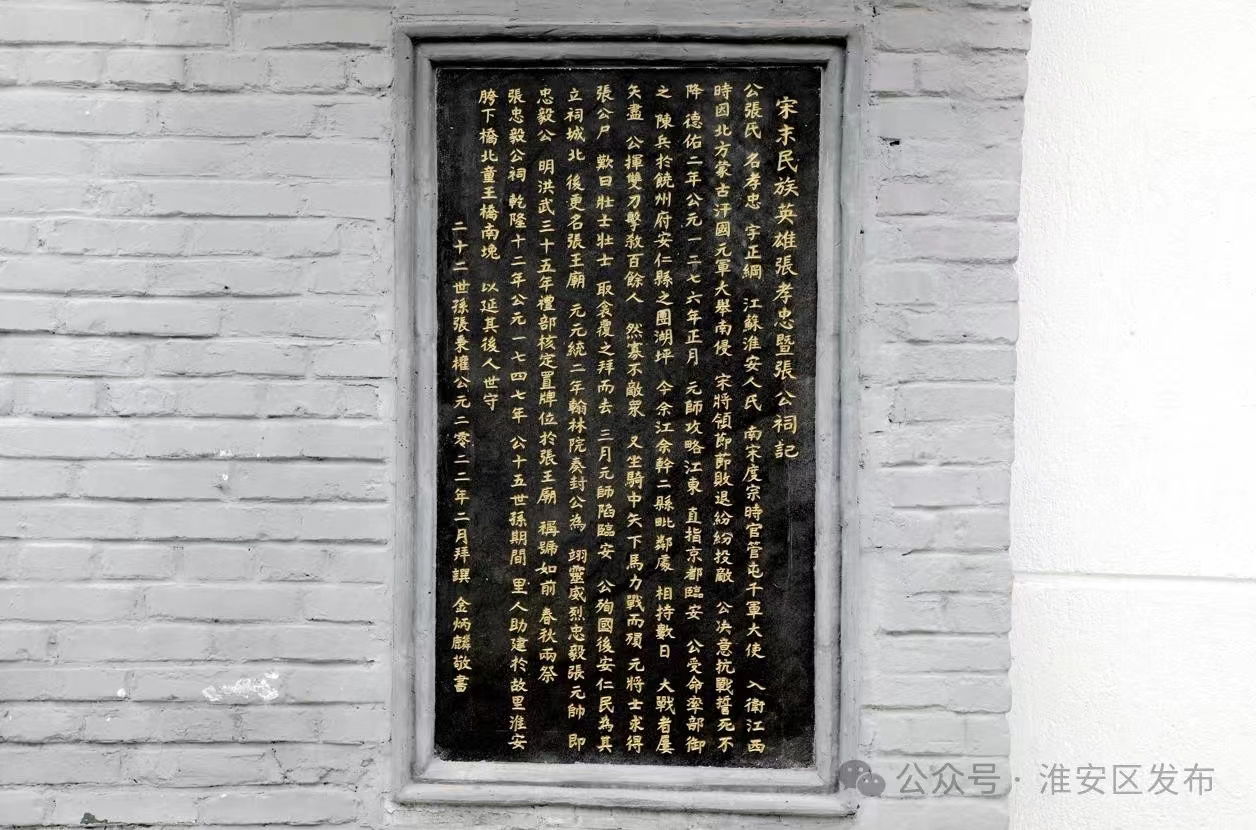 宋末民族英雄張孝忠暨張公祠記
公張氏 名孝忠 字正綱 江蘇淮安人氏 南宋度宗時官管屯千軍大使 入衛江西
時因北方蒙古汗國元軍大舉南侵 宋將領節節敗退紛紛投敵 公決意抗戰誓死不
降 德佑二年公元一二七六年正月 元師攻略江東 直指京都臨安 公受命率部御
之 陳兵於饒州府安仁縣之團湖坪 今余江余幹二縣毗鄰處 相持數日 大戰者屢
矢盡 公揮雙刀擊殺百餘人 然寡不敵衆 又坐騎中矢下馬力戰而殞 元將士求得
張公尸 歎曰壯士壯士 取衾覆之拜而去 三月元師陷臨安 公殉國後安仁民為其
立祠城北 後更名張王廟 元元統二年翰林院奏封公為 翊靈威烈忠毅張元帥 即
忠毅公 明洪武三十五年禮部核定置牌位於張王廟 稱謚如前 春秋兩祭
張忠毅公祠 乾隆十二年公元一七四七年 公十五世孫期間 里人助建於故里淮安
胯下橋北童王橋南堍 以延其後人世守
二十二世孫張秉權公元二零二二年二月拜譔 金炳麟敬書
公众号·淮安区发布